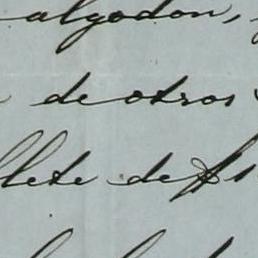 algodon,
de otros
llete de